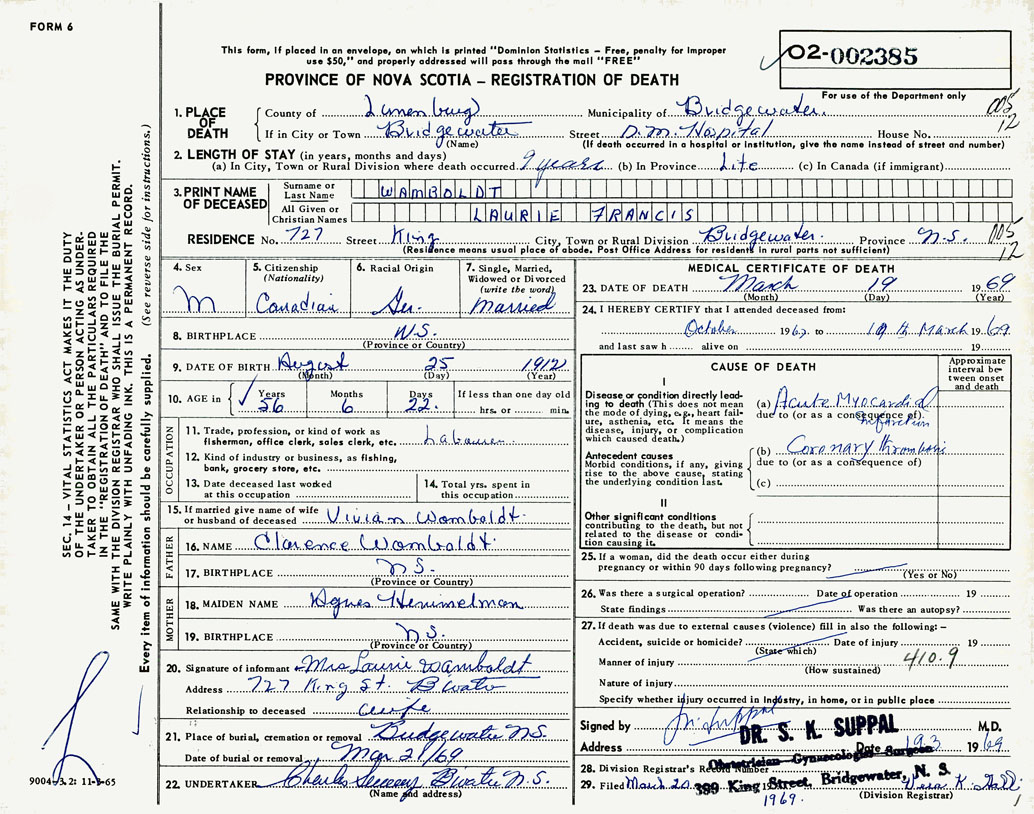 FORM 6
This form, if placed in an envelope, on which is printed "Dominion Statistics – Free, penalty for improper
use $50," and properly addressed will pass through the mail "FREE"
PROVINCE OF NOVA SCOTIA – REGISTRATION OF DEATH
02-002385
For use of the Department only
005
12
1. PLACE OF DEATH
County of Lunenburg Municipality of Bridgewater.
If in City or Town Bridgewater Street D.M. Hospital House No.
(Name) (If death occurred in a hospital or institution, give the name instead of street and number)
2. LENGTH OF STAY (in years, months and days)
(a) In City, Town or Rural Division where death occurred. 9 years (b) In Province Life (c) In Canada (if immigrant)
3. PRINT NAME OF DECEASED
Surname or Last Name WAMBOLDT
All Given or Christian Names LAURIE FRANCIS
RESIDENCE No. 727 Street King City, Town or Rural Division Bridgewater. Province N.S. 005
(Residence means usual place of abode. Post Office Address for residents in rural parts not sufficient) 12
4. Sex
M
5. Citizenship
(Nationality)
Canadian
6. Racial Origin
Ger.
7. Single, Married,
Widowed or Divorced
(write the word)
Married
8. BIRTHPLACE N.S.
(Province or Country)
9. DATE OF BIRTH August 25 1912
(Month) (Day) (Year)
10. AGE in Years Months Days If less than one day old
56 6 22. hrs. or min.
OCCUPATION
11. Trade, profession or kind of work as
fisherman, office clerk, sales clerk, etc.
12. Kind of industry or business, as fishing,
bank, grocery store, etc.
13. Date deceased last worked
at this occupation
14. Total yrs. spent in
this occupation
15. If married give name of wife
or husband of deceased Vivian Womboldt.
FATHER
16. NAME Clarence Womboldt.
17. BIRTHPLACE N.S.
(Province or Country)
MOTHER
18. MAIDEN NAME Agnes Himmelman
19. BIRTHPLACE N.S.
(Province or Country)
20. Signature of informant Mrs Laurie Wamboldt
Address 727 King St. B'water
Relationship to deceased wife
21. Place of burial, cremation or removal Bridgewater N.S.
Date of burial or removal Mar 21/69
22. UNDERTAKER Charles B'water N.S.
(Name and address)
MEDICAL CERTIFICATE OF DEATH
23. DATE OF DEATH March 19 1969
(Month) (Day) (Year)
24. I HEREBY CERTIFY that I attended deceased from:
October 1967. to 19th March 1969.
and last saw h alive on 19
CAUSE OF DEATH
Approximate interval between onset and death
I
Disease or condition directly leading to death (This does not mean the mode of dying, e.g., heart failure, asthenia, etc. It means the disease, injury, or complication which caused death.)
(a) Acute Myocardial Infarction
due to (or as a consequence of).
Antecedent causes
Morbid conditions, if any, giving rise to the above cause, stating the underlying condition last.
(b) Coronary thrombosis
due to (or as a consequence of)
(c)
II
Other significant conditions
contributing to the death, but not related to the disease or condition causing it.
25. If a woman, did the death occur either during
pregnancy or within 90 days following pregnancy?
(Yes or No)
26. Was there a surgical operation? Date of operation 19
State findings Was there an autopsy?
27. If death was due to external causes (violence) fill in also the following:–
Accident, suicide or homicide? Date of injury 19
(State which)
Manner of injury 410.9
(How sustained)
Nature of injury
Specify whether injury occurred in Industry, in home, or in public place
Signed by Suppal M.D.
DR. S. K. SUPPAL
Address Date 19.3 1969
Obstetrician - Gynaecologist Surgeon
399 King Street, Bridgewater, N. S.
28. Division Registrar's Record Number
29. Filed March 20 1969. Vera K.
(Division Registrar)
SEC. 14 – VITAL STATISTICS ACT MAKES IT THE DUTY
OF THE UNDERTAKER OR PERSON ACTING AS UNDER-
TAKER TO OBTAIN ALL THE PARTICULARS REQUIRED
IN THE "REGISTRATION OF DEATH" AND TO FILE THE
SAME WITH THE DIVISION REGISTRAR WHO SHALL ISSUE THE BURIAL PERMIT.
WRITE PLAINLY WITH UNFADING INK. THIS IS A PERMANENT RECORD.
Every item of information should be carefully supplied. (See reverse side for instructions.)